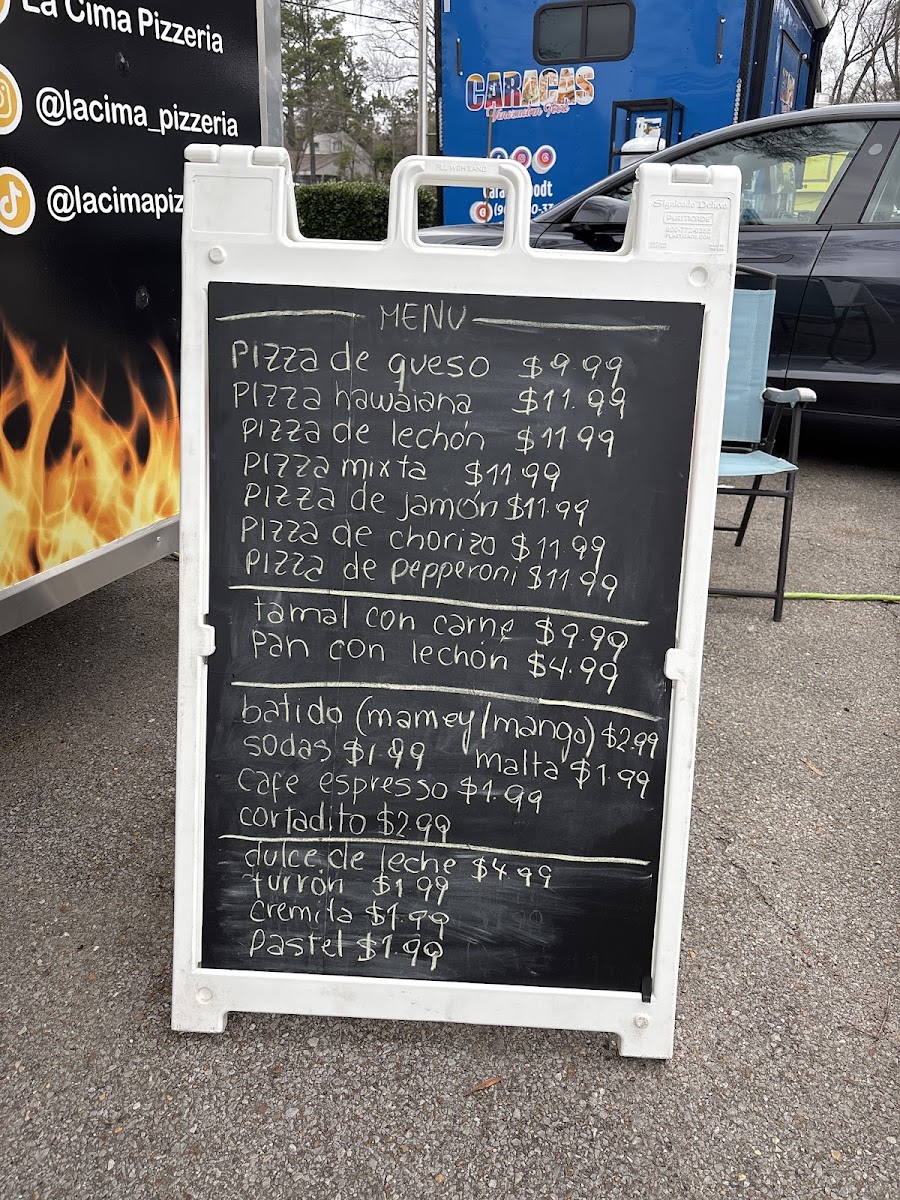 La Cima Pizzeria
@lacima_pizzeria
@lacimapiz
CARACAS
Venezuelan Food
MENU
PIZZA de queso $9.99
PIZZA hawaiana $11.99
PIZZA de lechón $11.99
PIZZA mixta $11.99
PIZZA de jamón $11.99
PIZZA de chorizo $11.99
PIZZA de pepperoni $11.99
tamal con carne $9.99
Pan con lechón $4.99
batido (mamey/mango) $2.99
sodas $1.99 malta $1.99
cafe espresso $1.99
cortadito $2.99
dulce de leche $4.99
turrón $1.99
cremita $1.99
Pastel $1.99
Signicade Deluxe
PLASTICADE